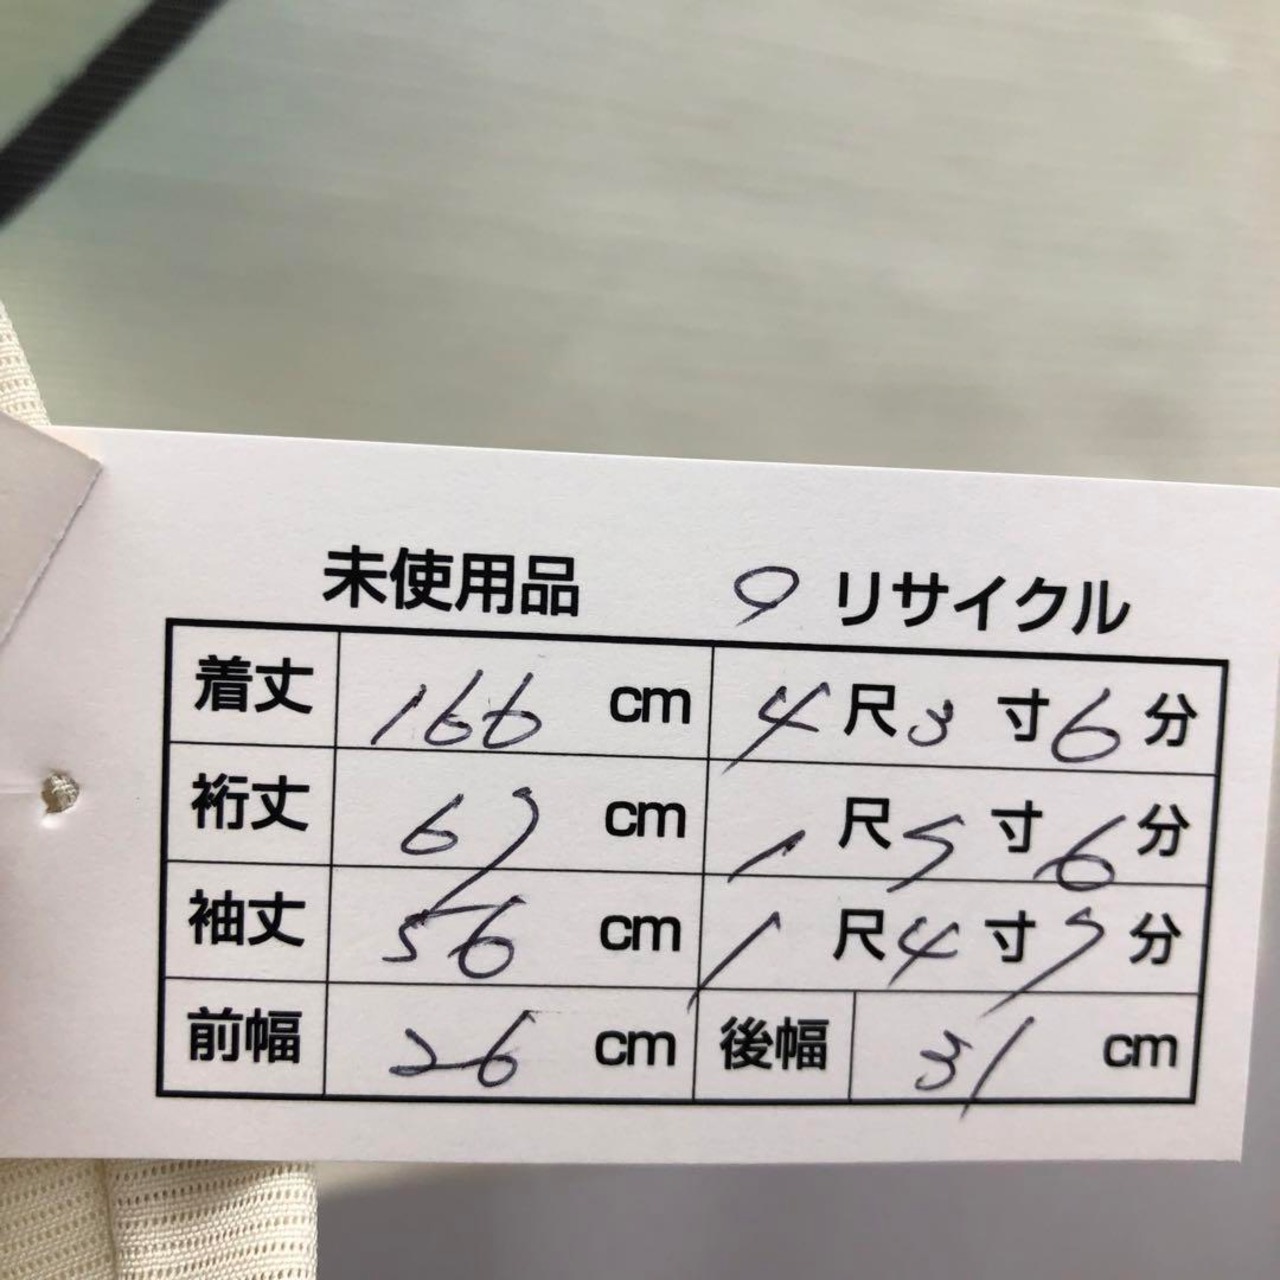 未使用品 ○ リサイクル
着丈 166 cm 4 尺 3 寸 6 分
裄丈 67 cm 1 尺 7 寸 6 分
袖丈 56 cm 1 尺 4 寸 7 分
前幅 26 cm 後幅 31 cm